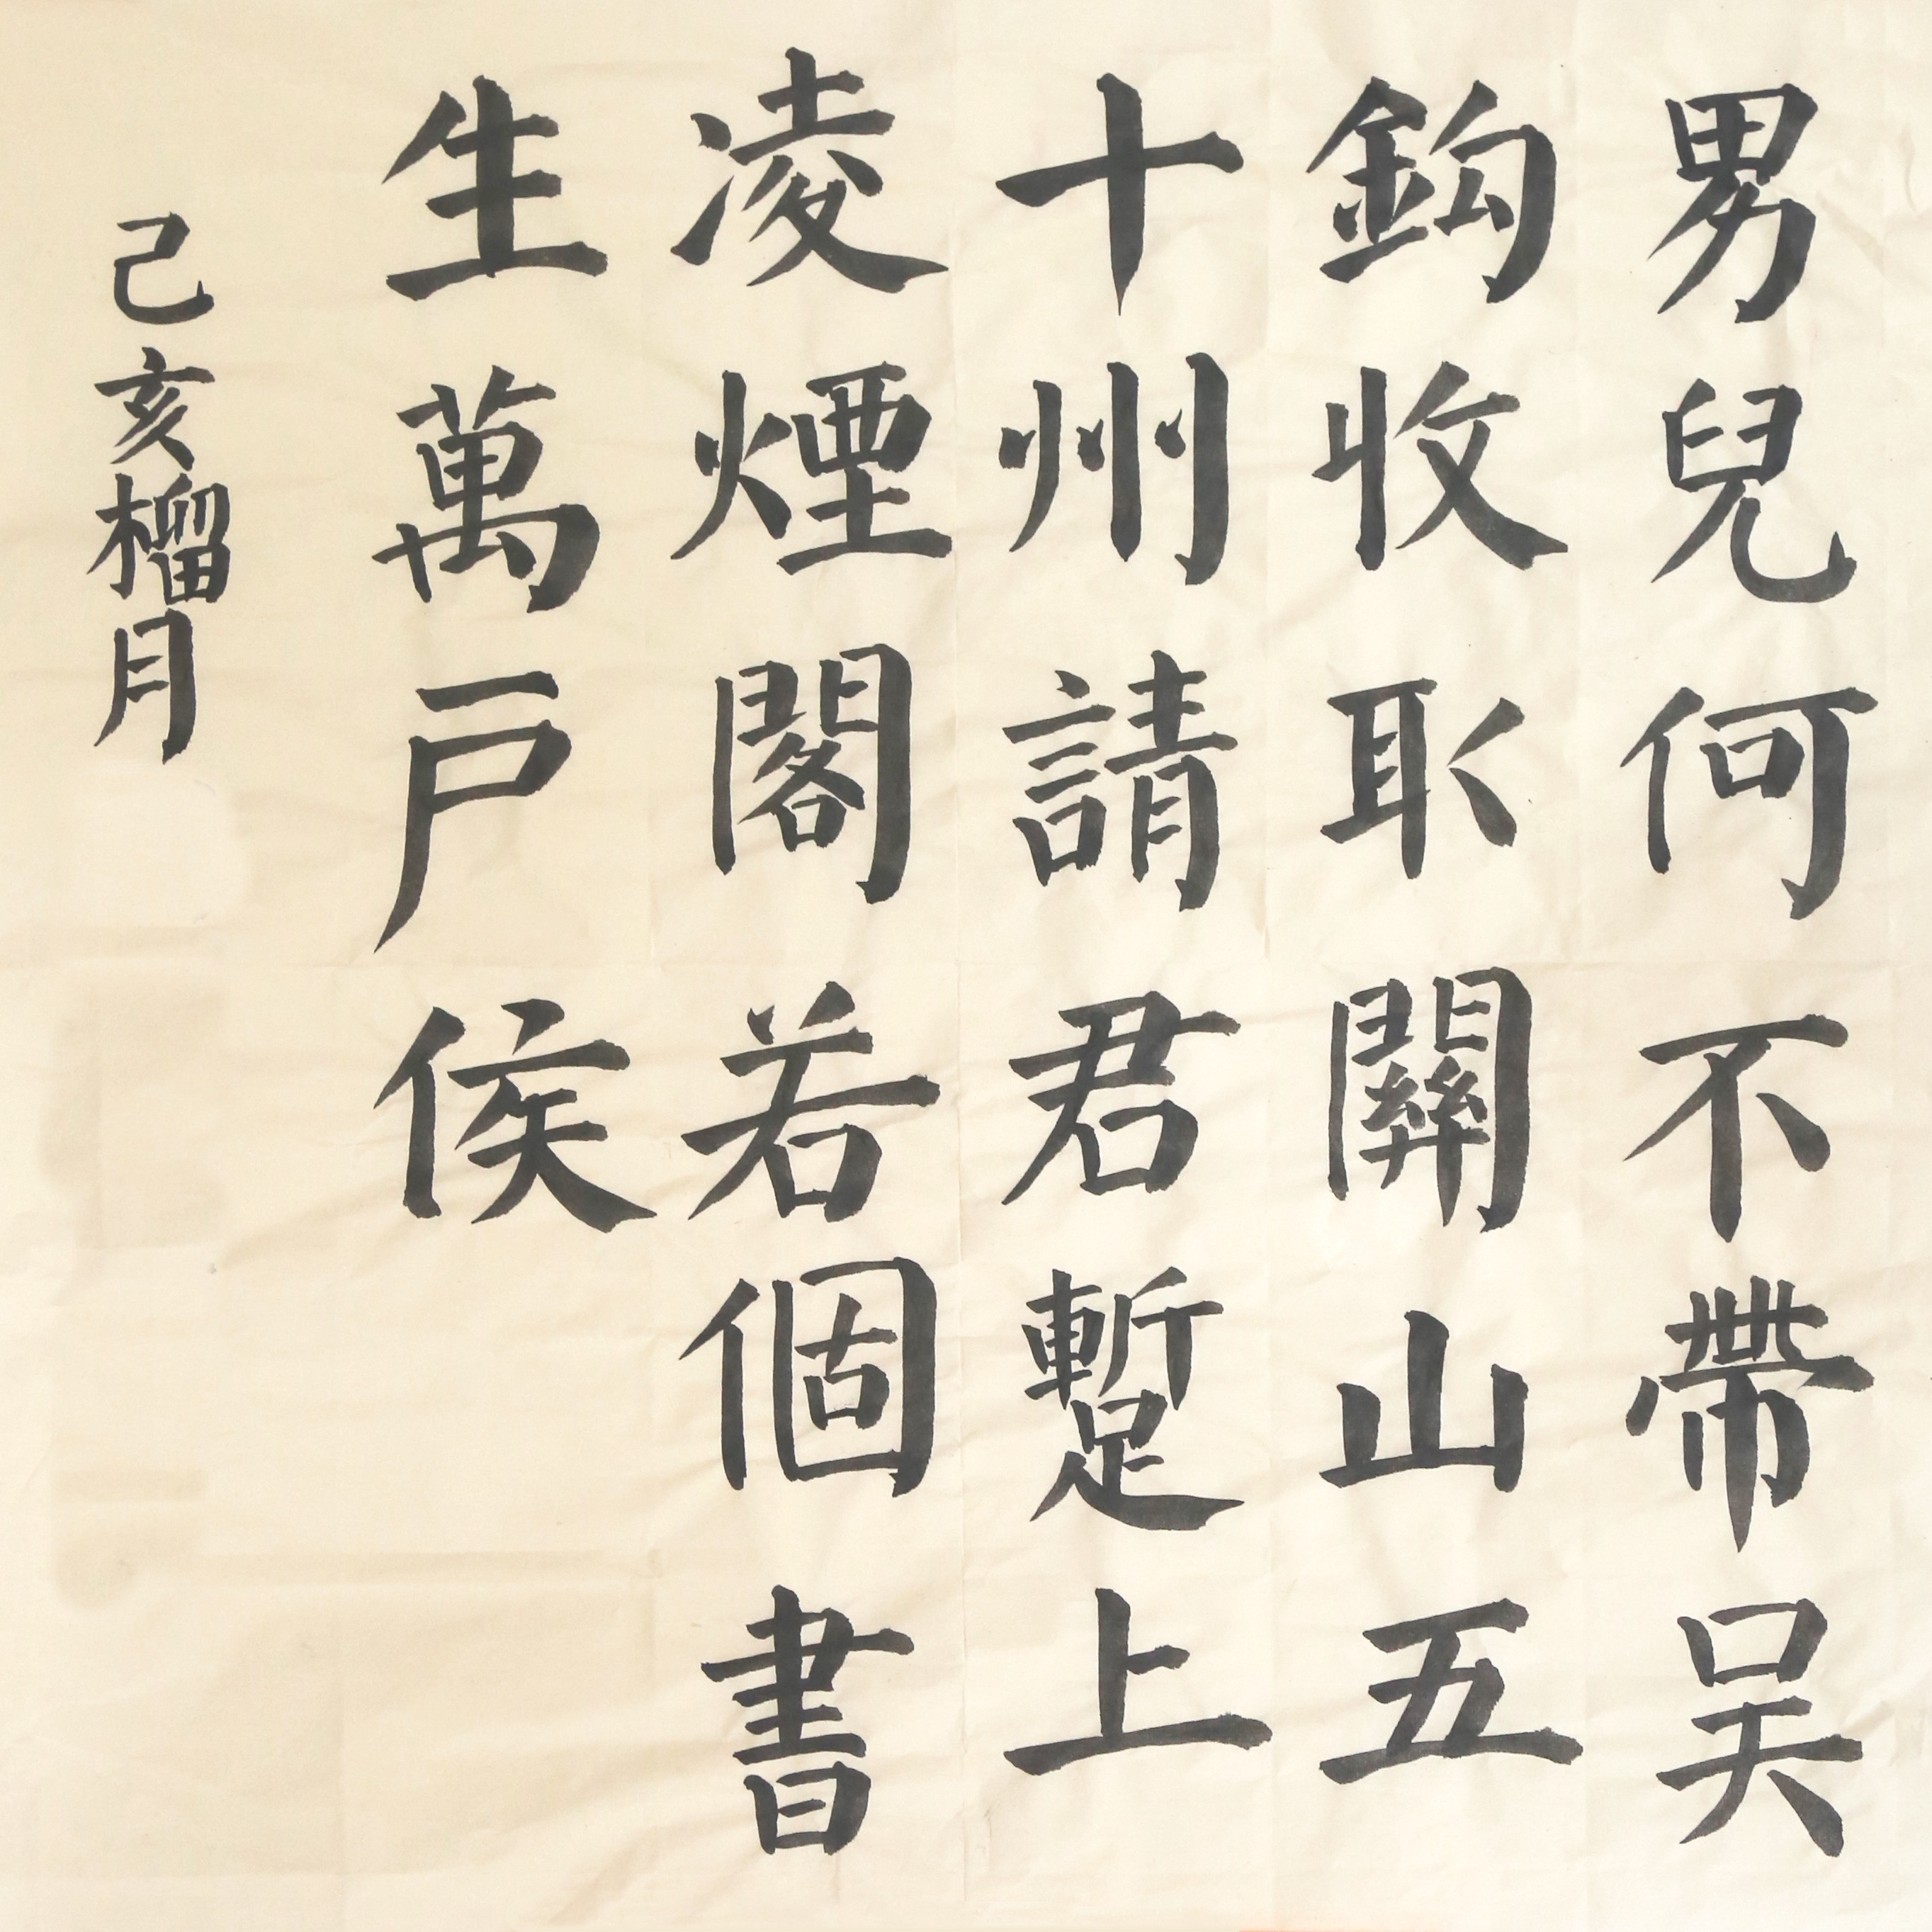 男兒何不帶吴
鈎收取關山五
十州請君蹔上
凌煙閣若個書
生萬戸侯
己亥榴月